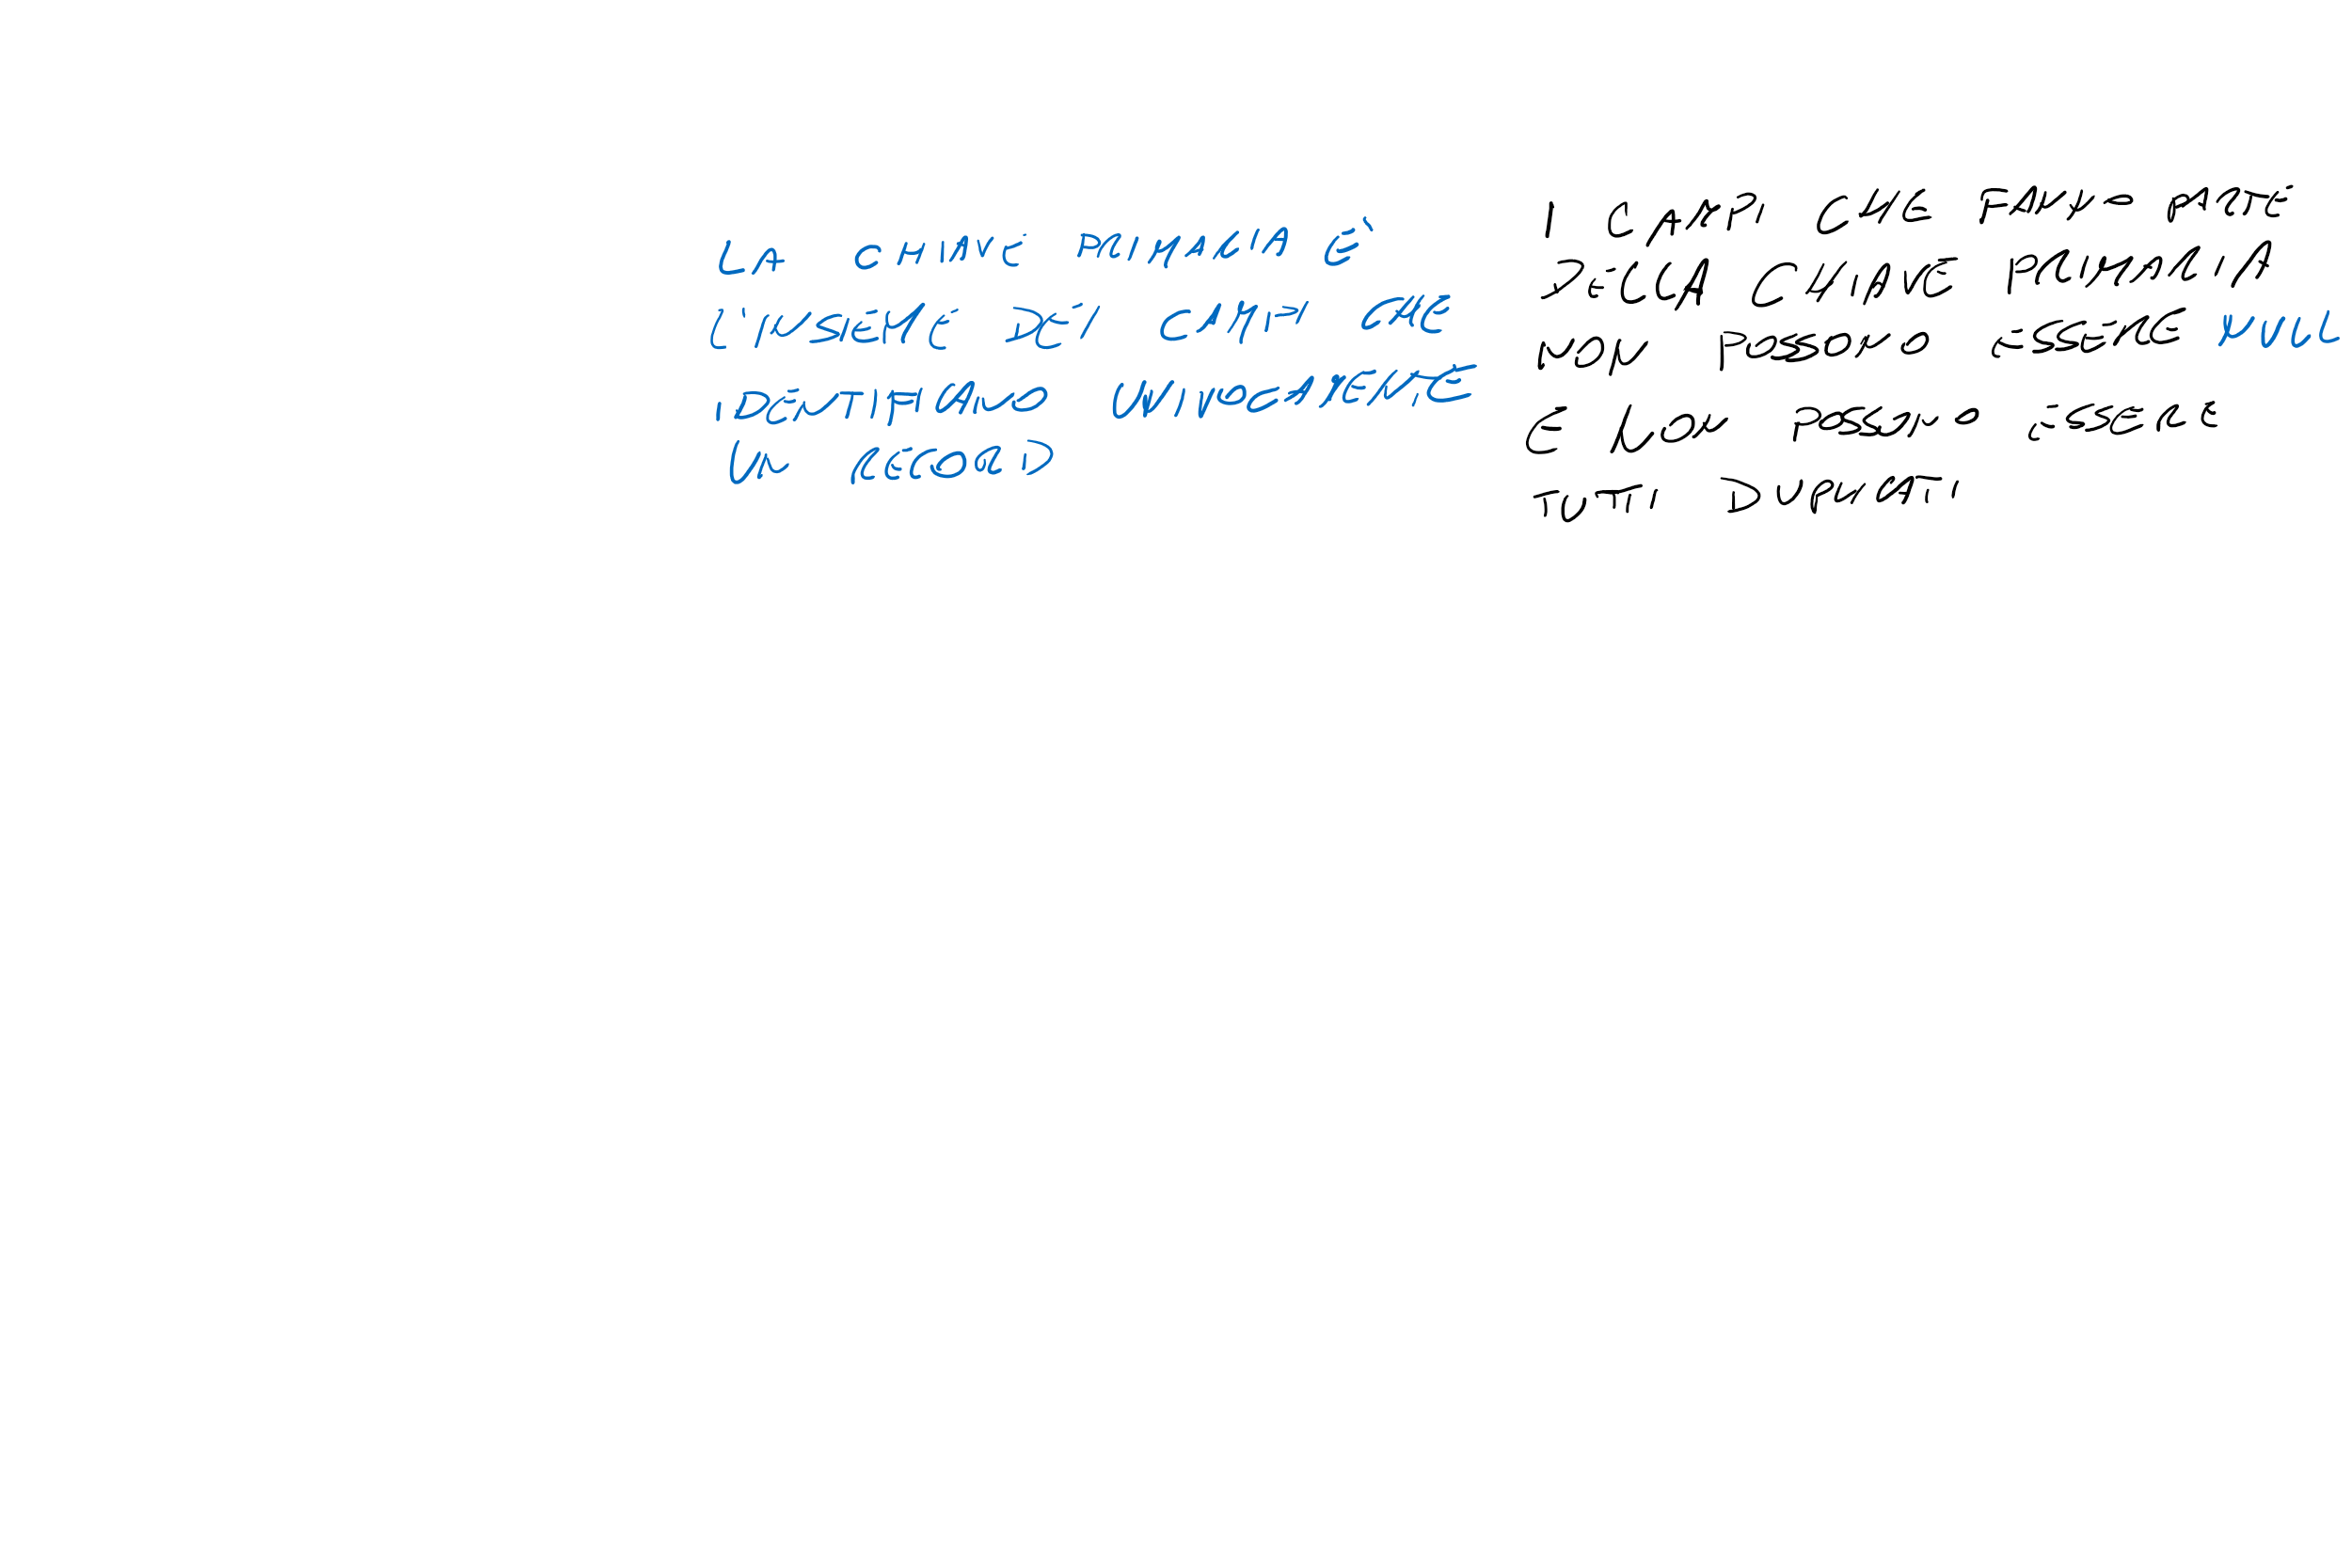 LA CHIAVE PRIMARIA È
L'INSIEME DEI CAMPI CHE
IDENTIFICANO UNIVOCAMENTE
UN RECORD
I CAMPI CHE FANNO PARTE
DELLA CHIAVE PRIMARIA
NON POSSONO ESSERE NULL
E NON POSSONO ESSERE
TUTTI DUPLICATI